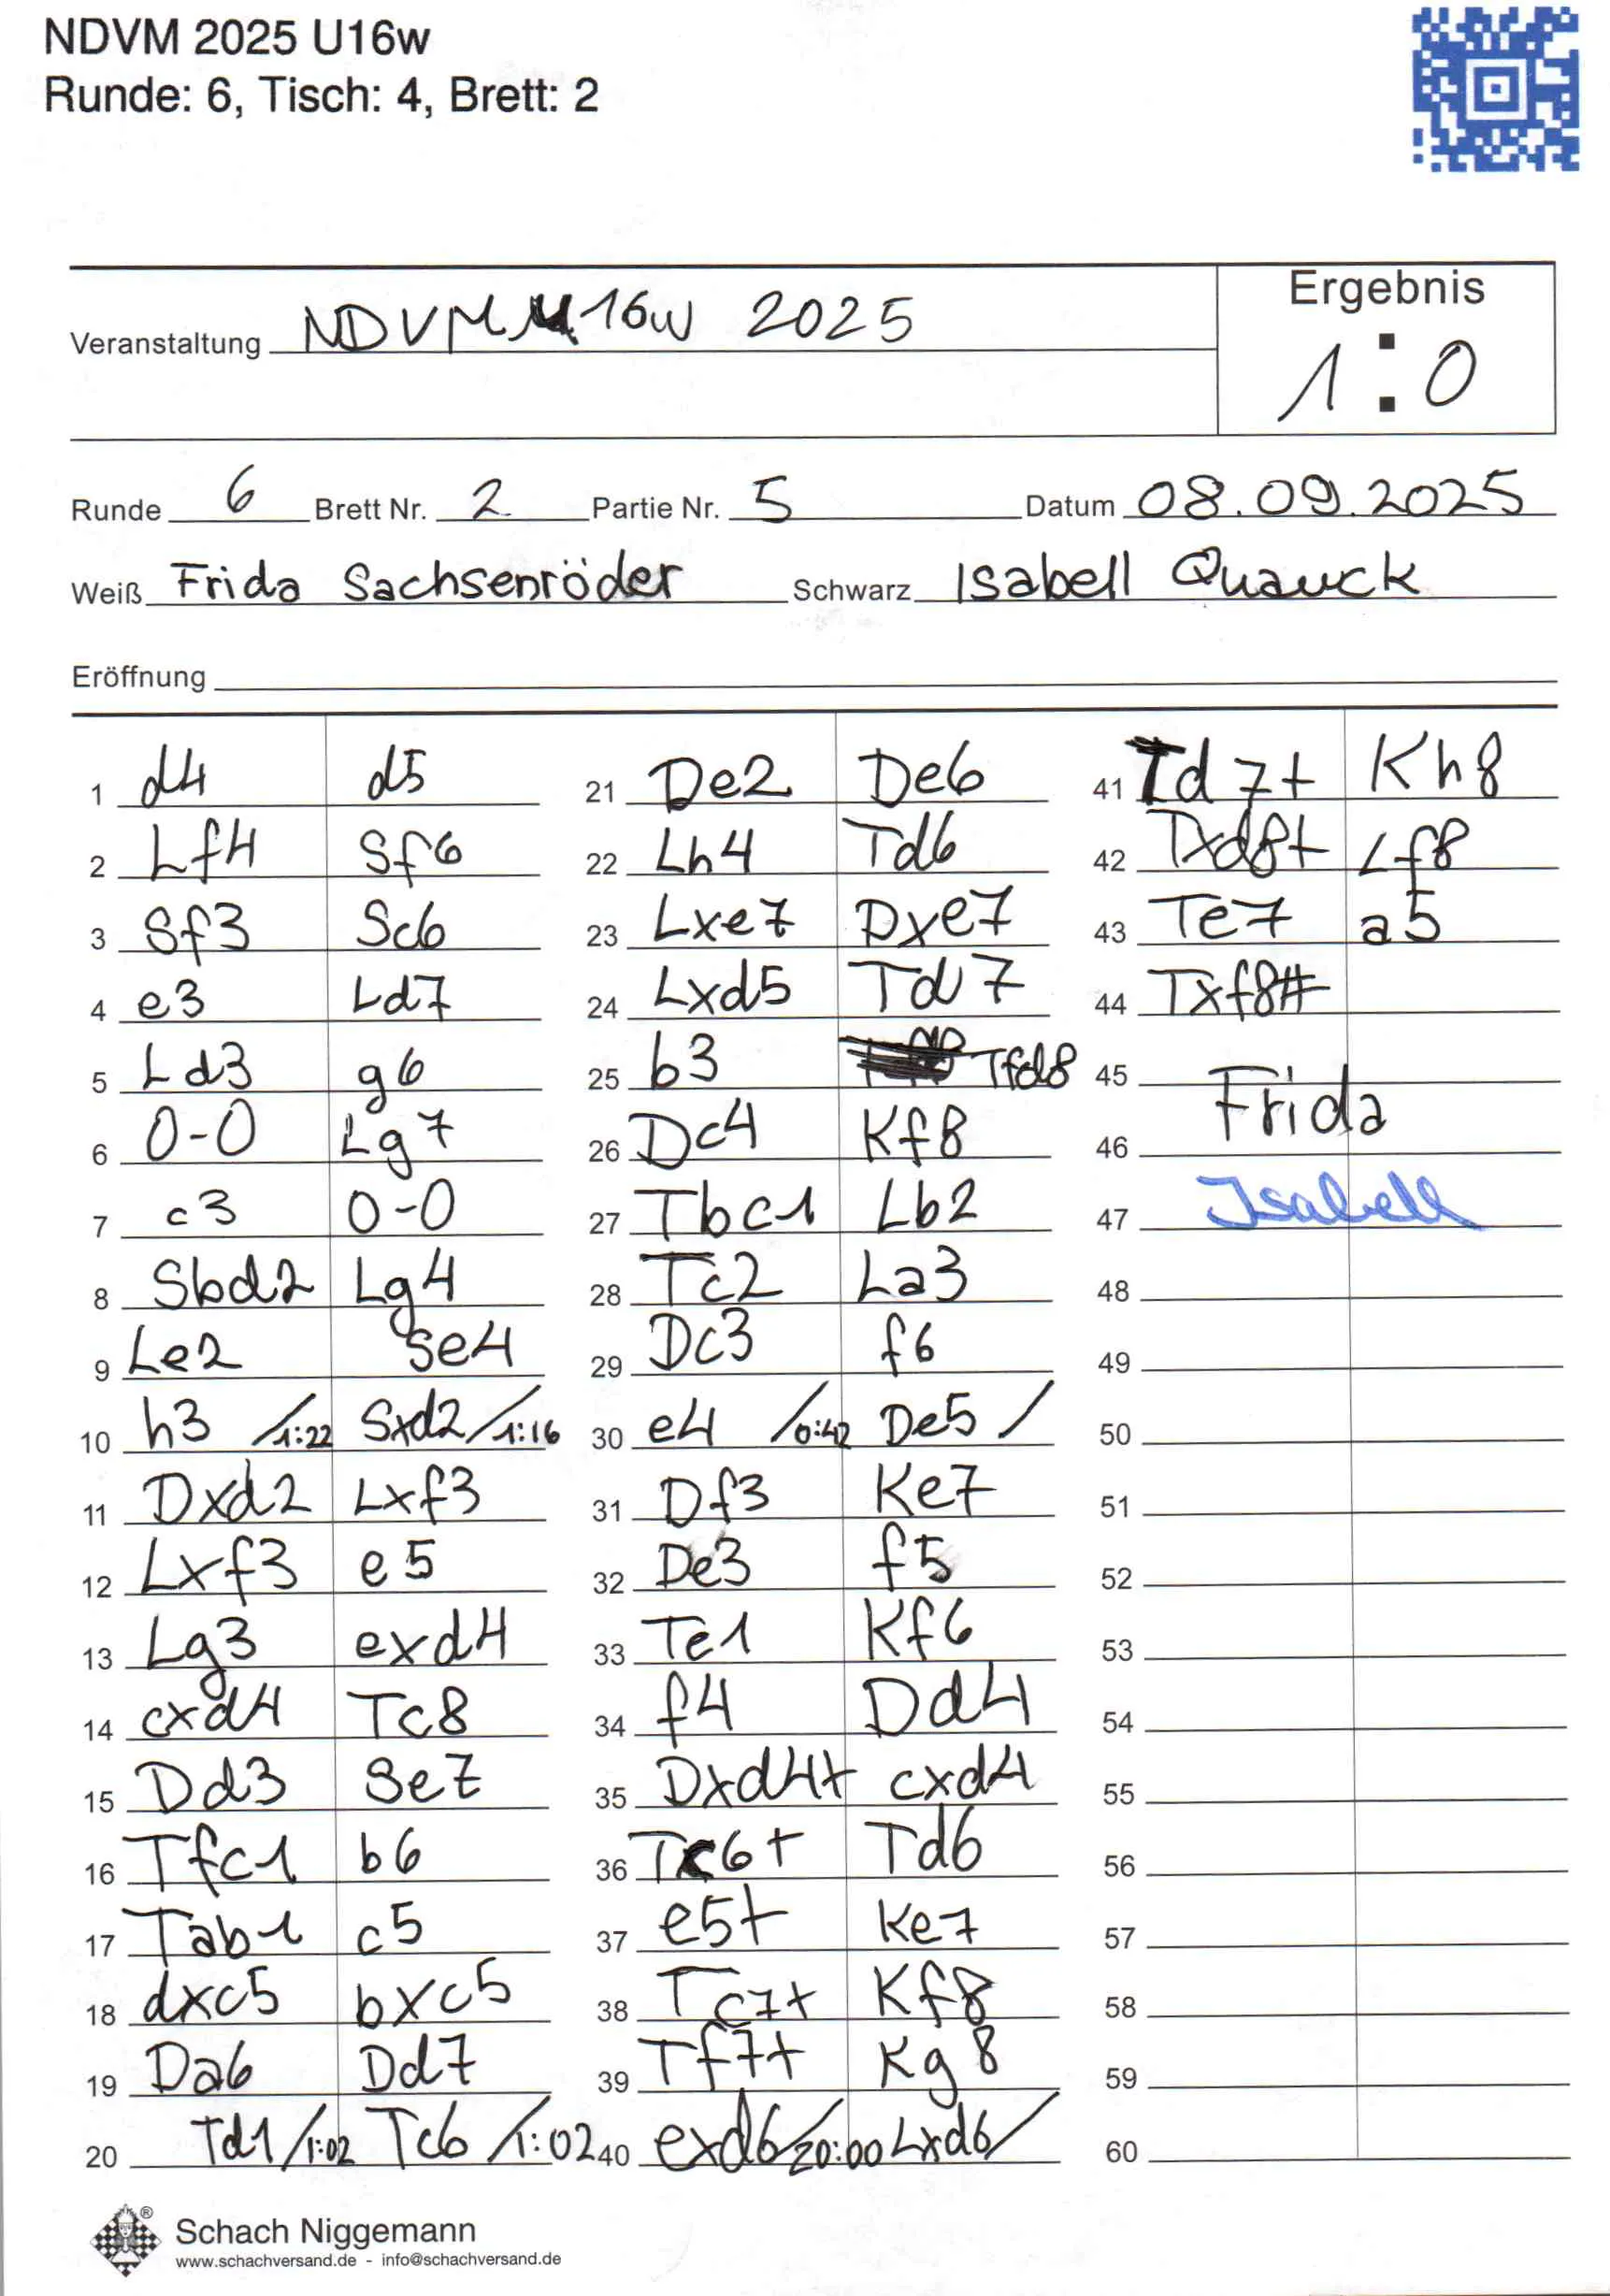 NDVM 2025 U16w
Runde: 6, Tisch: 4, Brett: 2
Ergebnis
Veranstaltung NDVM U16w 2025
1 : 0
Runde 6 Brett Nr. 2 Partie Nr. 5 Datum 08.09.2025
Weiß Frida Sachsenröder Schwarz Isabell Quauck
Eröffnung
1 d4 d5
2 Lf4 Sf6
3 Sf3 Sc6
4 e3 Ld7
5 Ld3 g6
6 0-0 Lg7
7 c3 0-0
8 Sbd2 Lg4
9 Le2 Se4
10 h3 /1:22 Sxd2 /1:16
11 Dxd2 Lxf3
12 Lxf3 e5
13 Lg3 exd4
14 cxd4 Tc8
15 Dd3 Se7
16 Tfc1 b6
17 Tab1 c5
18 dxc5 bxc5
19 Da6 Dd7
20 Td1 /1:02 Tc6 /1:02
21 De2 De6
22 Lh4 Td6
23 Lxe7 Dxe7
24 Lxd5 Td7
25 b3 Tfd8
26 Dc4 Kf8
27 Tbc1 Lb2
28 Tc2 La3
29 Dc3 f6
30 e4 /0:42 De5 /
31 Df3 Ke7
32 De3 f5
33 Te1 Kf6
34 f4 Dd4
35 Dxd4+ cxd4
36 Tc6+ Td6
37 e5+ Ke7
38 Tc7+ Kf8
39 Tf7+ Kg8
40 exd6 /20:00 Lxd6 /
41 Td7+ Kh8
42 Txd8+ Lf8
43 Te7 a5
44 Txf8#
45
46 Frida
47 Isabell
48
49
50
51
52
53
54
55
56
57
58
59
60
Schach Niggemann
www.schachversand.de - info@schachversand.de